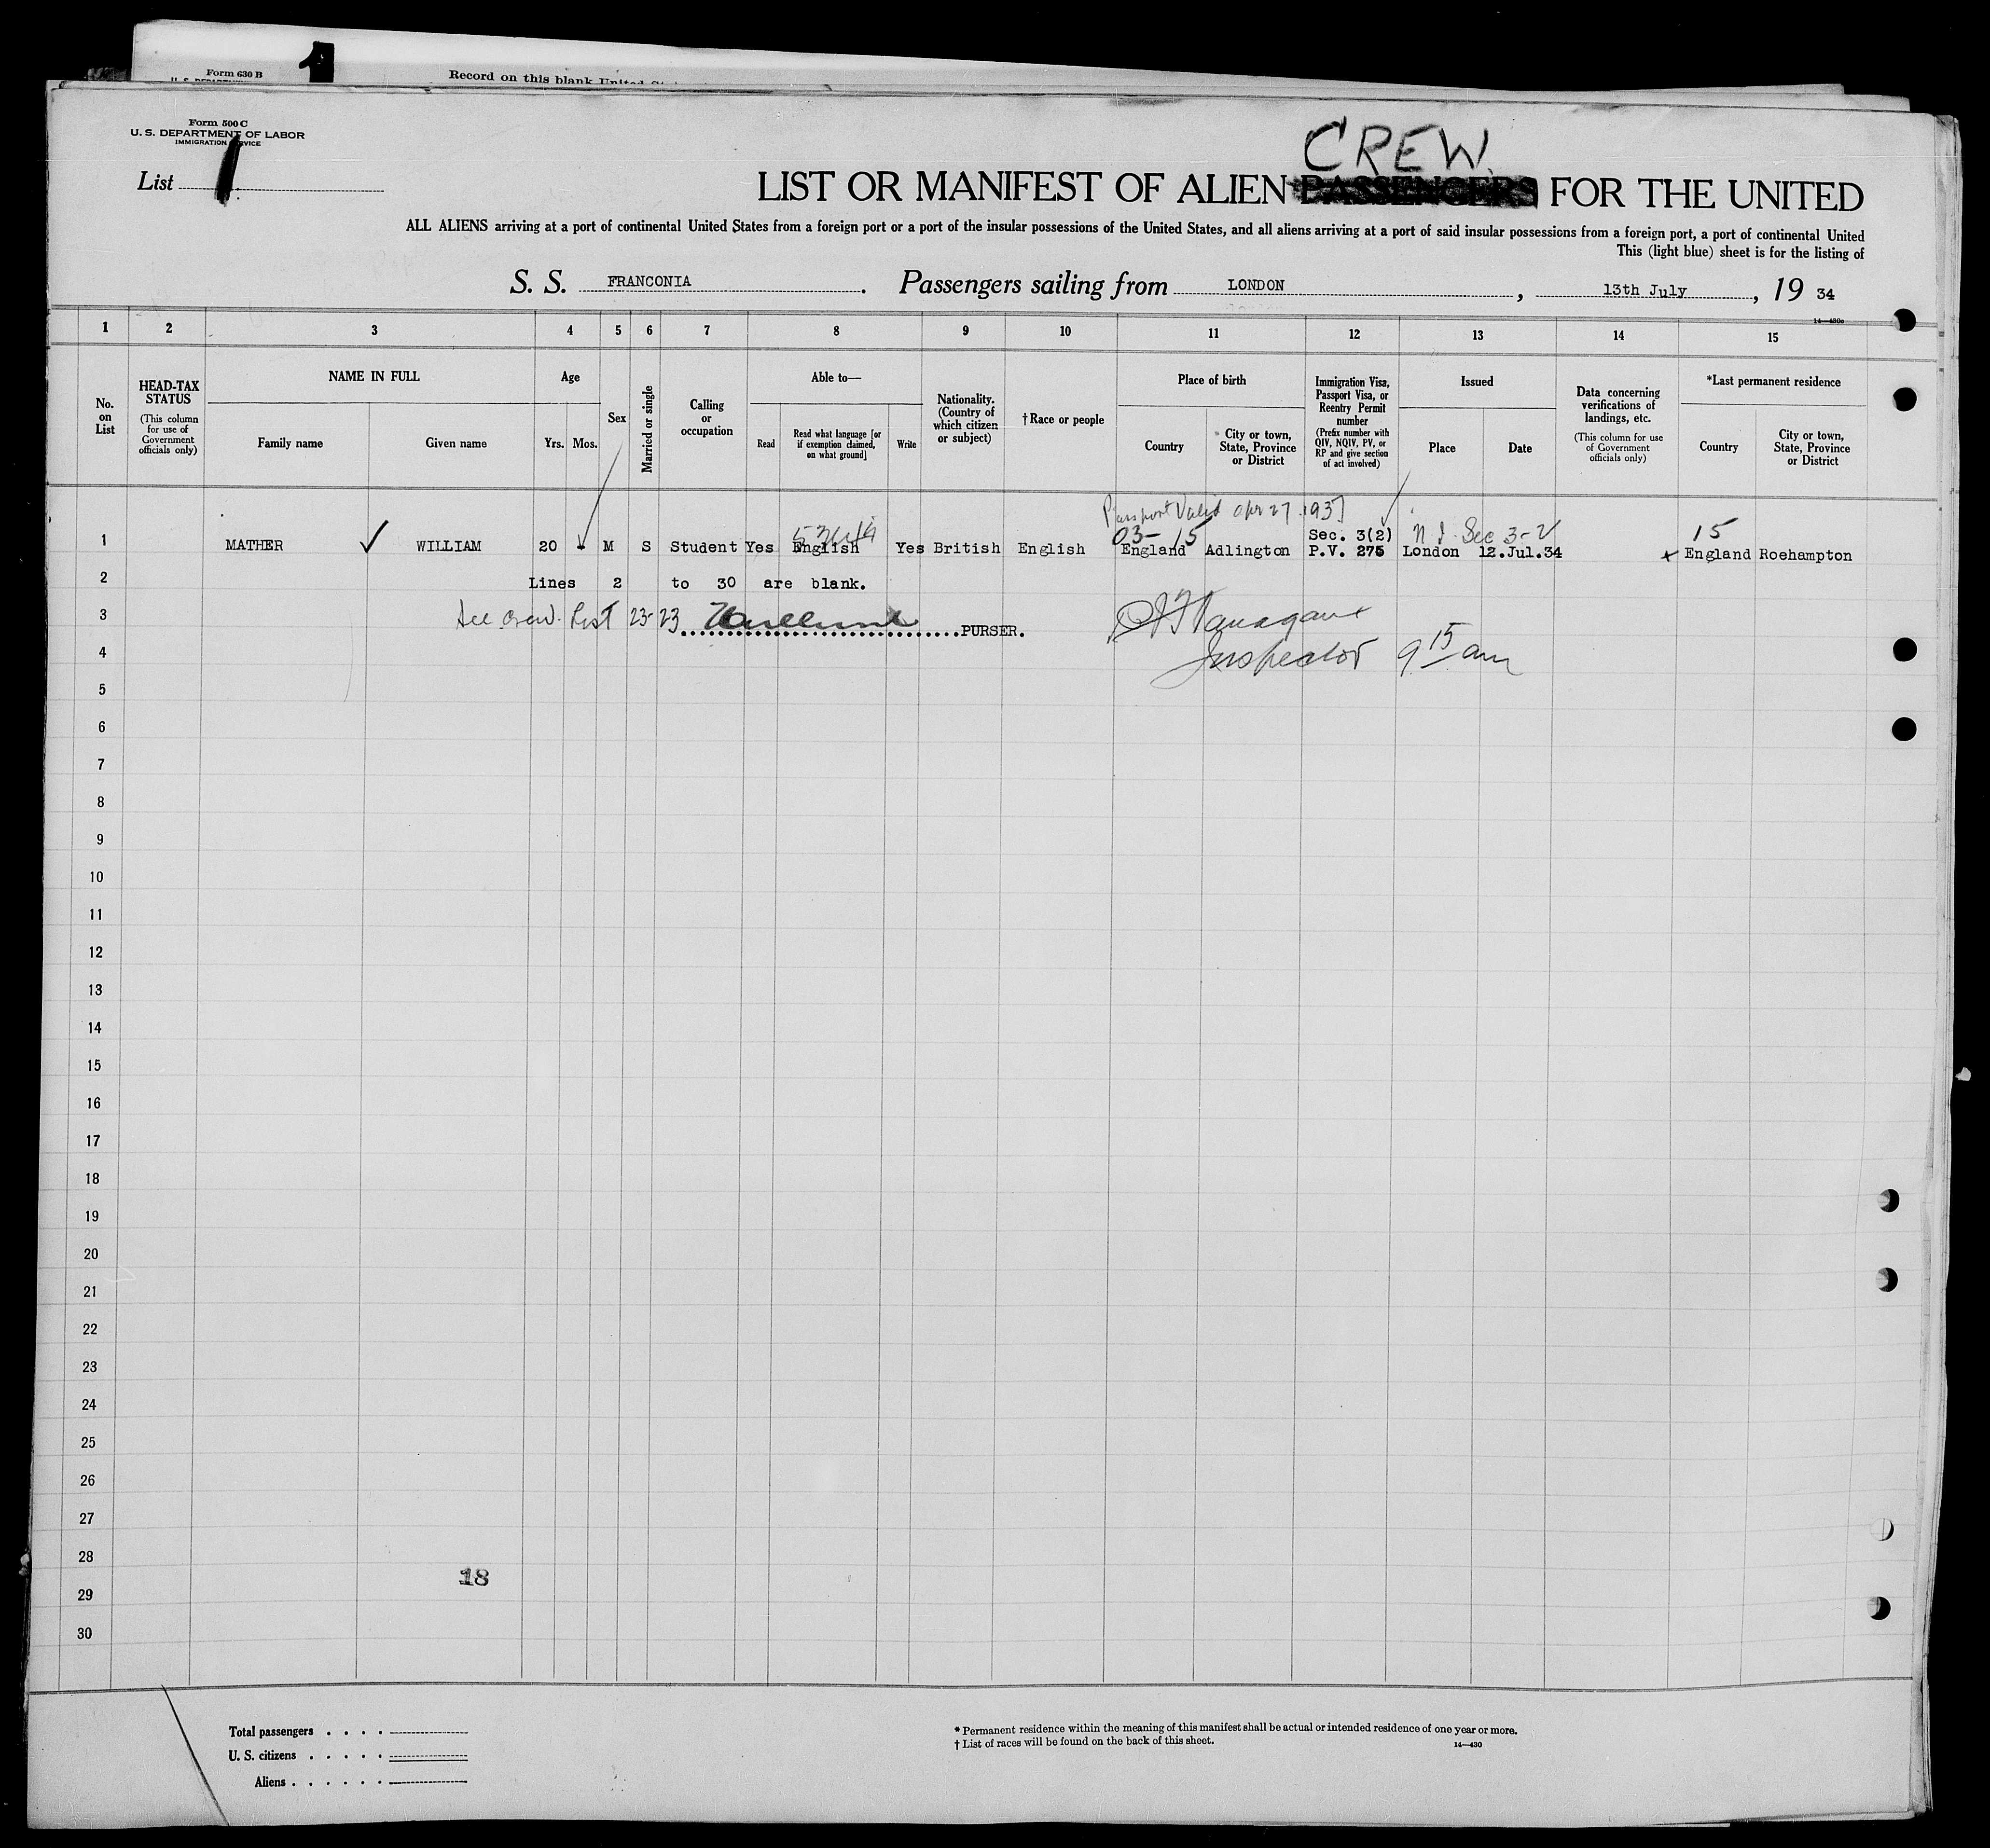 Form 630 B
Record on this blank United
Form 500 C
U. S. DEPARTMENT OF LABOR
IMMIGRATION SERVICE
List 1
CREW
LIST OR MANIFEST OF ALIEN PASSENGERS FOR THE UNITED
ALL ALIENS arriving at a port of continental United States from a foreign port or a port of the insular possessions of the United States, and all aliens arriving at a port of said insular possessions from a foreign port, a port of continental United
This (light blue) sheet is for the listing of
S. S. FRANCONIA. Passengers sailing from LONDON, 13th July, 19 34
14—430c
1 2 3 4 5 6 7 8 9 10 11 12 13 14 15
No. on List
HEAD-TAX STATUS
(This column for use of Government officials only)
NAME IN FULL
Family name
Given name
Age
Yrs. Mos.
Sex
Married or single
Calling or occupation
Able to—
Read
Read what language [or if exemption claimed, on what ground]
Write
Nationality. (Country of which citizen or subject)
†Race or people
Place of birth
Country
City or town, State, Province or District
Immigration Visa, Passport Visa, or Reentry Permit number
(Prefix number with QIV, NQIV, PV, or RP and give section of act involved)
Issued
Place
Date
Data concerning verifications of landings, etc.
(This column for use of Government officials only)
*Last permanent residence
Country
City or town, State, Province or District
Passport Valid Apr 27 1937
03- 15 Sec. 3(2) N I Sec 3-2 15
1 MATHER ✓ WILLIAM 20 - M S Student Yes English Yes British English England Adlington P.V. 275 London 12.Jul.34 x England Roehampton
2 Lines 2 to 30 are blank.
3 See Crew List 23-23 PURSER.
Inspector 9 15 am
4
5
6
7
8
9
10
11
12
13
14
15
16
17
18
19
20
21
22
23
24
25
26
27
28
18
29
30
Total passengers . . . .
U. S. citizens . . . . .
Aliens . . . . . .
* Permanent residence within the meaning of this manifest shall be actual or intended residence of one year or more.
† List of races will be found on the back of this sheet.
14—430